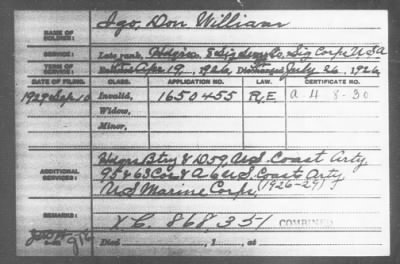 NAME OF SOLDIER: Igo, Don William
SERVICE: Late rank, 8 Sig Serv Co, Sig Corps U S A
TERM OF SERVICE: Enlisted Apr 19, 1926, Discharged July 26, 1926
DATE OF FILING. CLASS. APPLICATION NO. CERTIFICATE NO.
1929 Sep 10 Invalid, 1650455 A 4 8-30
Widow,
Minor,
ADDITIONAL SERVICES: Btry & D 59, U.S. Coast Arty
95 & 63 Cos & A 6 U.S. Coast Arty
U S Marine Corps, (1926-29)
REMARKS: X C. 868,351 COMBINED
Died , 1 , at